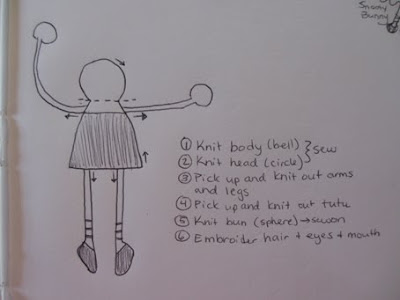 Snowy
Bunny
① Knit body (bell) } sew
② Knit head (circle)
③ Pick up and knit out arms
and legs
④ Pick up and knit out tutu
⑤ Knit bun (sphere) →
⑥ Embroider hair + eyes + mouth